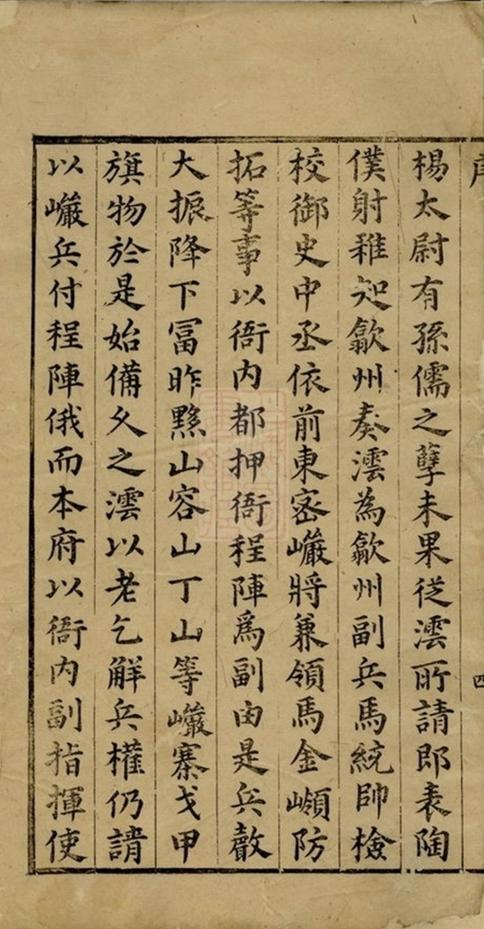 序
楊太尉有孫儒之孽未果從澐所請郎表陶
僕射稚知歙州奏澐為歙州副兵馬統帥檢
校御史中丞依前東密巗將兼領馬金嶺防
拓等事以衙内都押衙程陣爲副由是兵嚴
大振降下冨昨黟山容山丁山等巗寨戈甲
旗物於是始備久之澐以老乞解兵權仍請
以巗兵付程陣俄而本府以衙内副指揮使
四